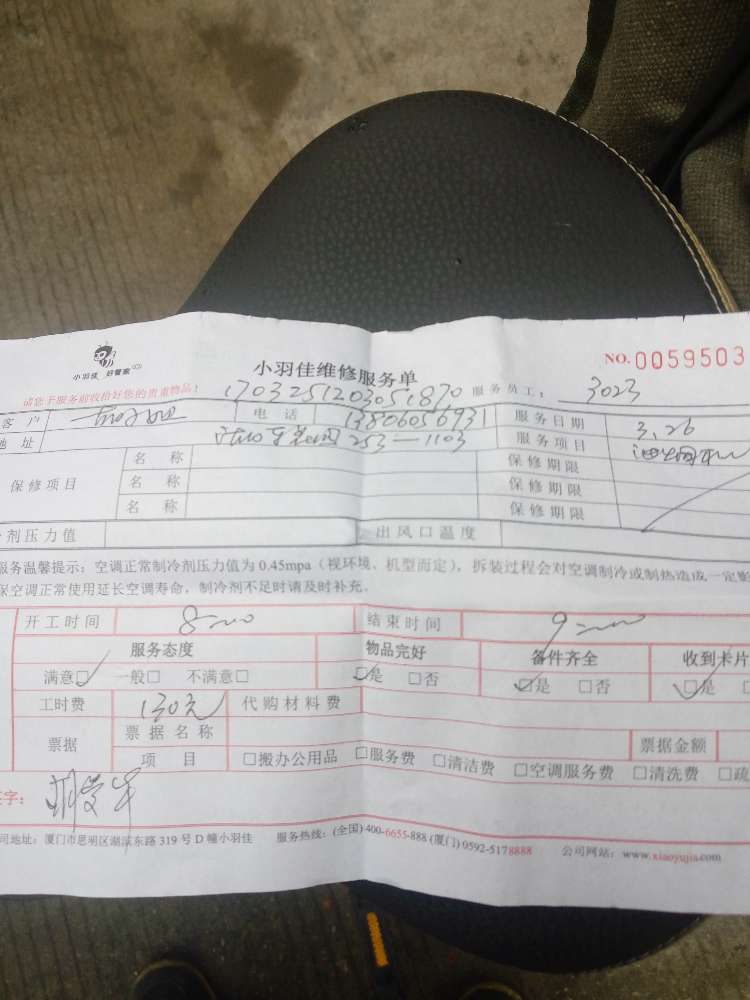 小羽佳 好管家
小羽佳维修服务单
NO. 0059503
请您于服务前收拾好您的贵重物品!
1703251203051870 服务员工: 3023
客户 电话 13806056931 服务日期 3.26
地址 253—1103 服务项目
保修项目 名称 保修期限
名称 保修期限
名称 保修期限
剂压力值 出风口温度
服务温馨提示: 空调正常制冷剂压力值为 0.45mpa (视环境、机型而定), 拆装过程会对空调制冷或制热造成一定
保空调正常使用延长空调寿命, 制冷剂不足时请及时补充.
开工时间 8 结束时间 9
服务态度 物品完好 备件齐全 收到卡片
满意□ 一般□ 不满意□ □是 □否 □是 □否 □是
工时费 130元 代购材料费
票据 票据名称 票据金额
项目 □搬办公用品 □服务费 □清洁费 □空调服务费 □清洗费 □疏
字:
司地址: 厦门市思明区湖滨东路 319 号 D 幢小羽佳 服务热线: (全国) 400-6655-888 (厦门) 0592-5178888 公司网站: www.xiaoyujia.com